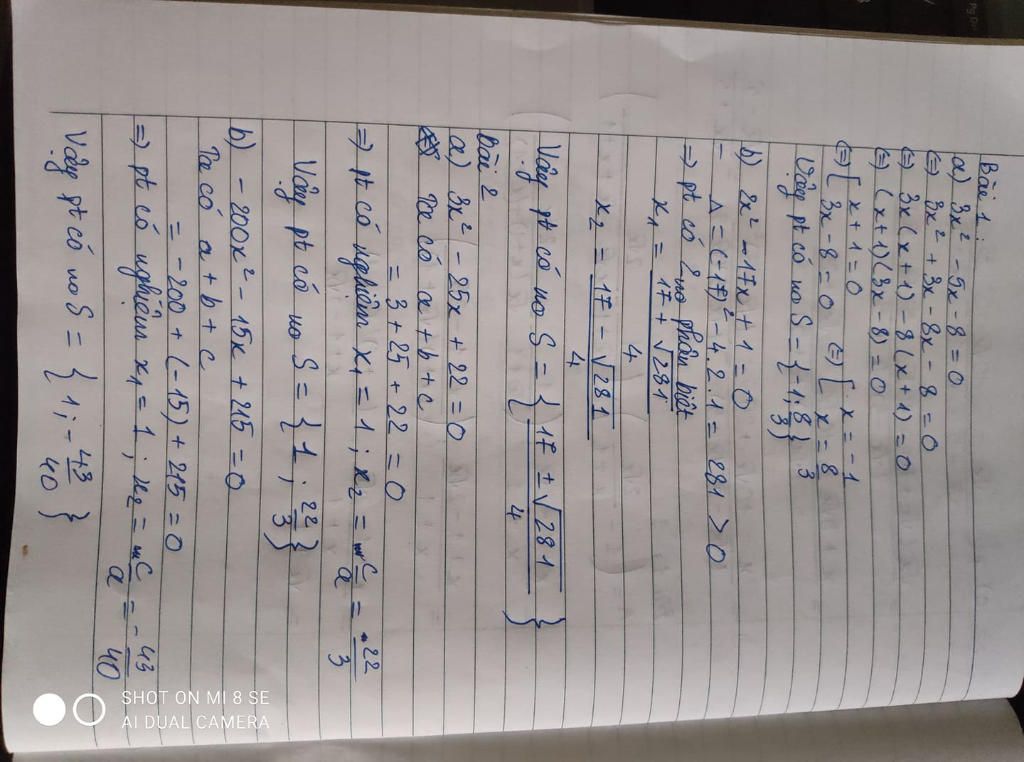 Bài 1:
a) 3x² - 5x - 8 = 0
⇔ 3x² + 3x - 8x - 8 = 0
⇔ 3x(x+1) - 8(x+1) = 0
⇔ (x+1)(3x-8) = 0
⇔ [ x+1=0 ⇔ [ x = -1
3x-8=0 x = 8/3
Vậy pt có no S = {-1; 8/3}
b) 2x² - 17x + 1 = 0
- Δ = (-17)² - 4.2.1 = 281 > 0
⇒ pt có 2 no phân biệt
x₁ = (17 + √281)/4
x₂ = (17 - √281)/4
Vậy pt có no S = { (17 ± √281)/4 }
Bài 2
a) 3x² - 25x + 22 = 0
Ta có a + b + c
= 3 + 25 + 22 = 0
⇒ pt có nghiệm x₁ = 1 ; x₂ = c/a = 22/3
Vậy pt có no S = { 1 ; 22/3 }
b) - 200x² - 15x + 215 = 0
Ta có a + b + c
= - 200 + (-15) + 215 = 0
⇒ pt có nghiệm x₁ = 1 ; x₂ = c/a = -43/40
Vậy pt có no S = { 1 ; -43/40 }
SHOT ON MI 8 SE
AI DUAL CAMERA